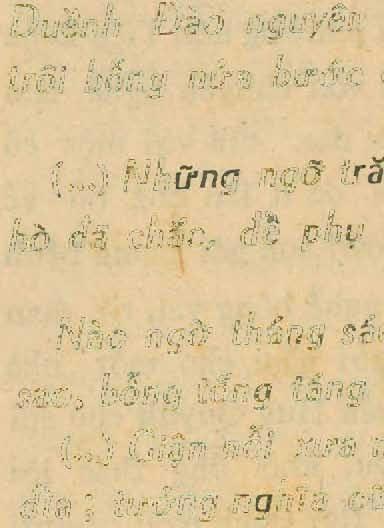 Duềnh Đào nguyên
trôi bóng nửa bước
(...) Những ngỡ tră
hò đã chắc, để phụ
Nào ngờ tháng sáu
sao, bỗng tăng tăng
(...) Giận nỗi xưa
đĩa ; tưởng nghĩa cũ